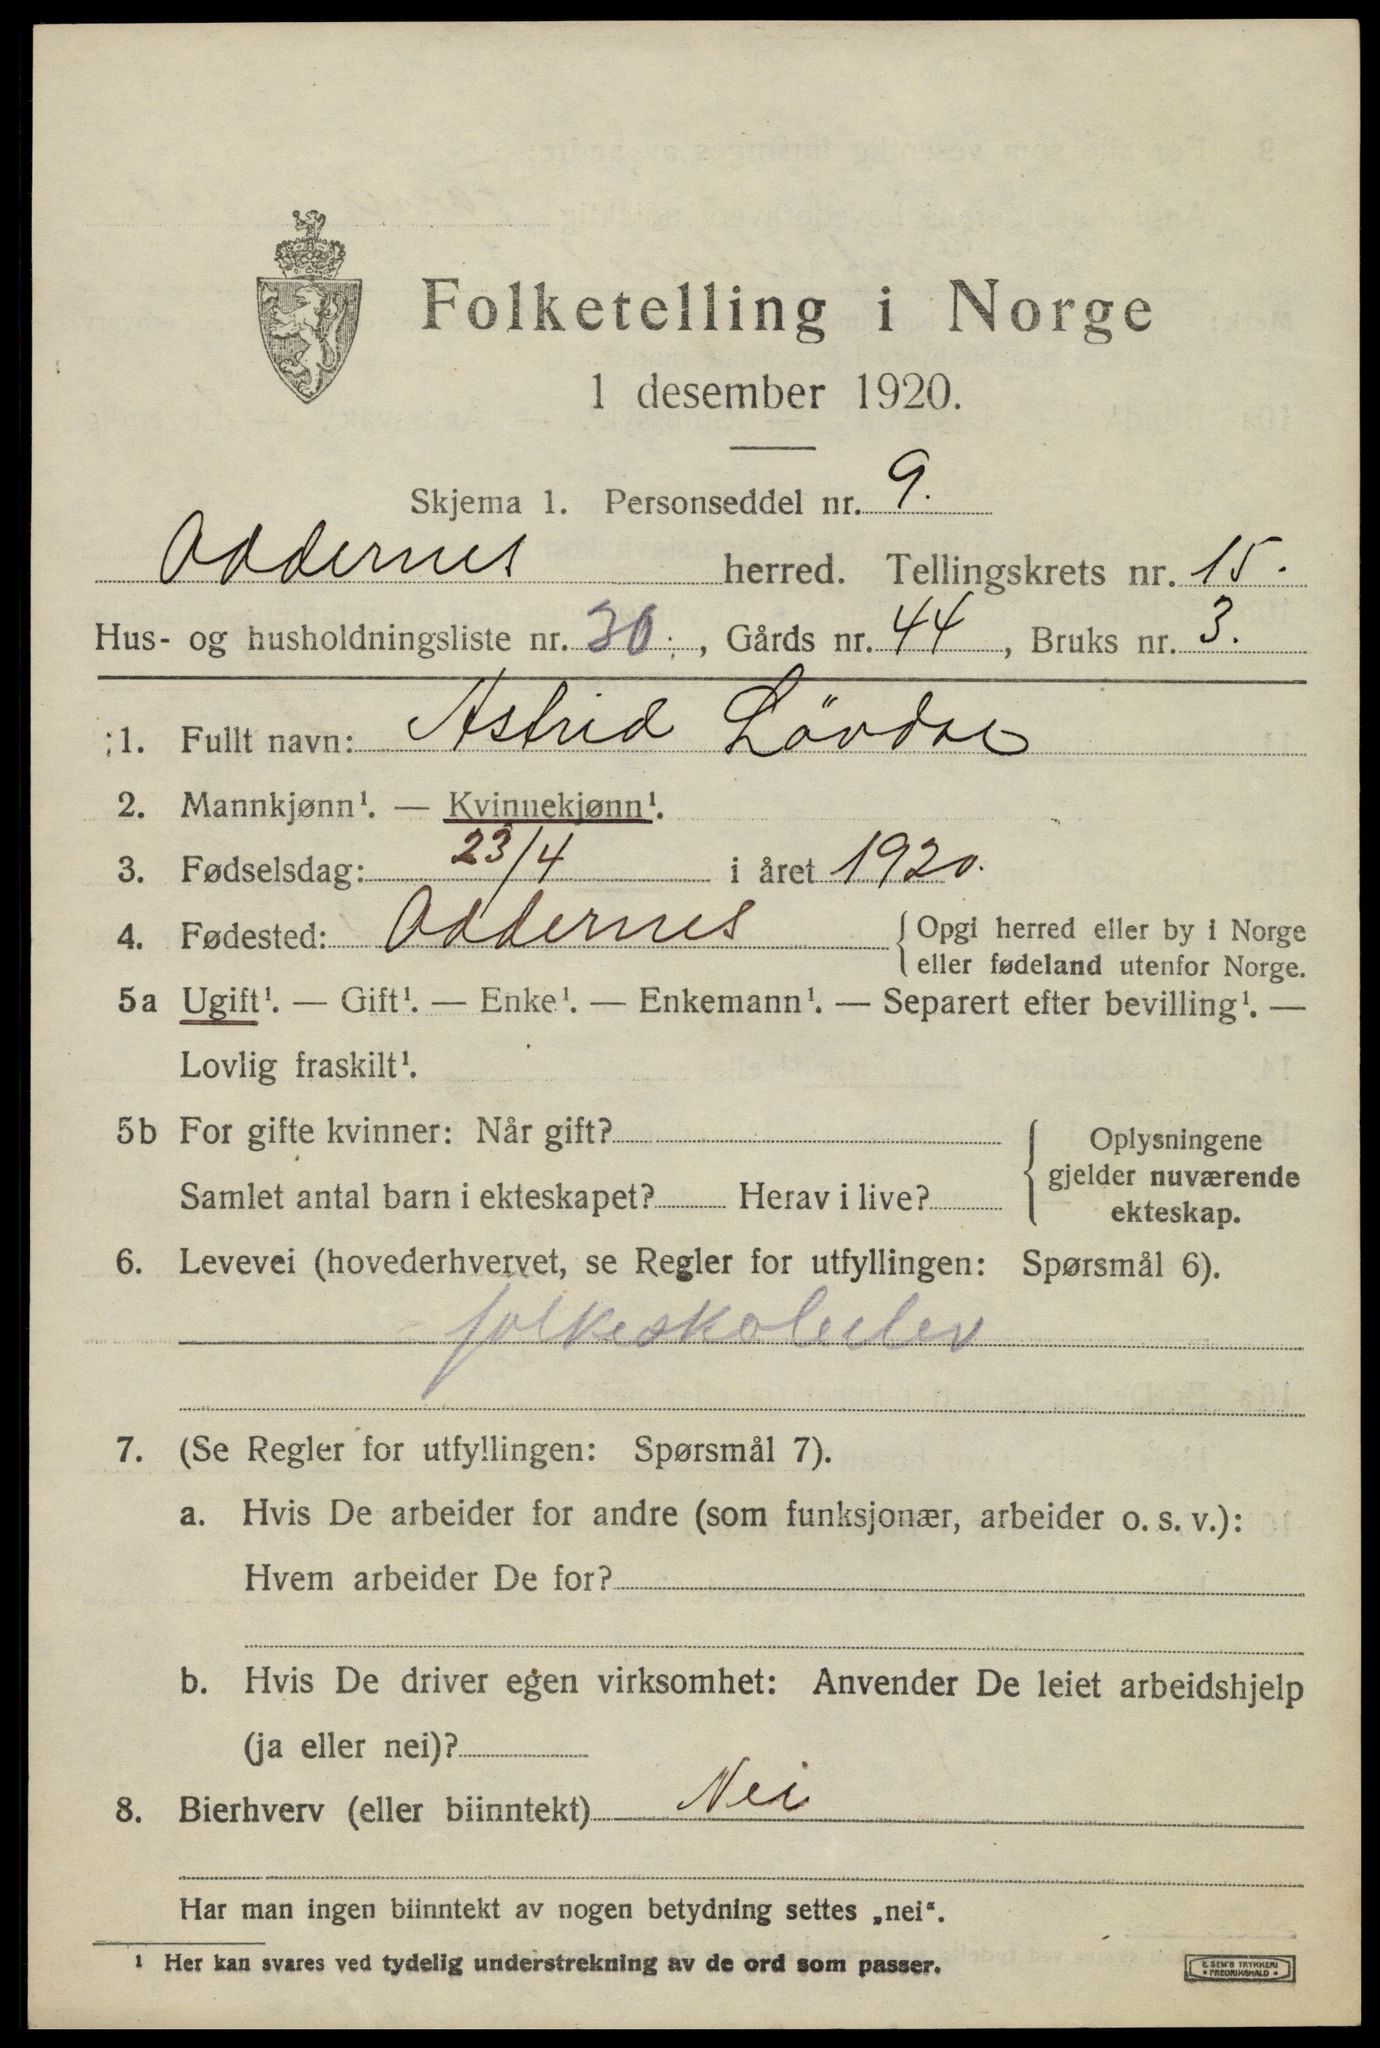 Folketelling i Norge
1 desember 1920.
Skjema 1. Personseddel nr. 9.
Oddernes herred. Tellingskrets nr. 15.
Hus- og husholdningsliste nr. 30., Gårds nr. 44, Bruks nr. 3.
1. Fullt navn: Astrid Lövdal
2. Mannkjønn¹. — Kvinnekjønn¹.
3. Fødselsdag: 23/4 i året 1920.
4. Fødested: Oddernes { Opgi herred eller by i Norge
eller fødeland utenfor Norge.
5a Ugift¹. — Gift¹. — Enke¹. — Enkemann¹. — Separert efter bevilling¹. —
Lovlig fraskilt¹.
5b For gifte kvinner: Når gift? { Oplysningene
gjelder nuværende
Samlet antal barn i ekteskapet? Herav i live? ekteskap.
6. Levevei (hovederhvervet, se Regler for utfyllingen: Spørsmål 6).
folkeskoleelev
7. (Se Regler for utfyllingen: Spørsmål 7).
a. Hvis De arbeider for andre (som funksjonær, arbeider o. s. v.):
Hvem arbeider De for?
b. Hvis De driver egen virksomhet: Anvender De leiet arbeidshjelp
(ja eller nei)?
8. Bierhverv (eller biinntekt) Nei
Har man ingen biinntekt av nogen betydning settes „nei“.
¹ Her kan svares ved tydelig understrekning av de ord som passer.
E. SEM'S TRYKKERI
• FREDRIKSHALD •